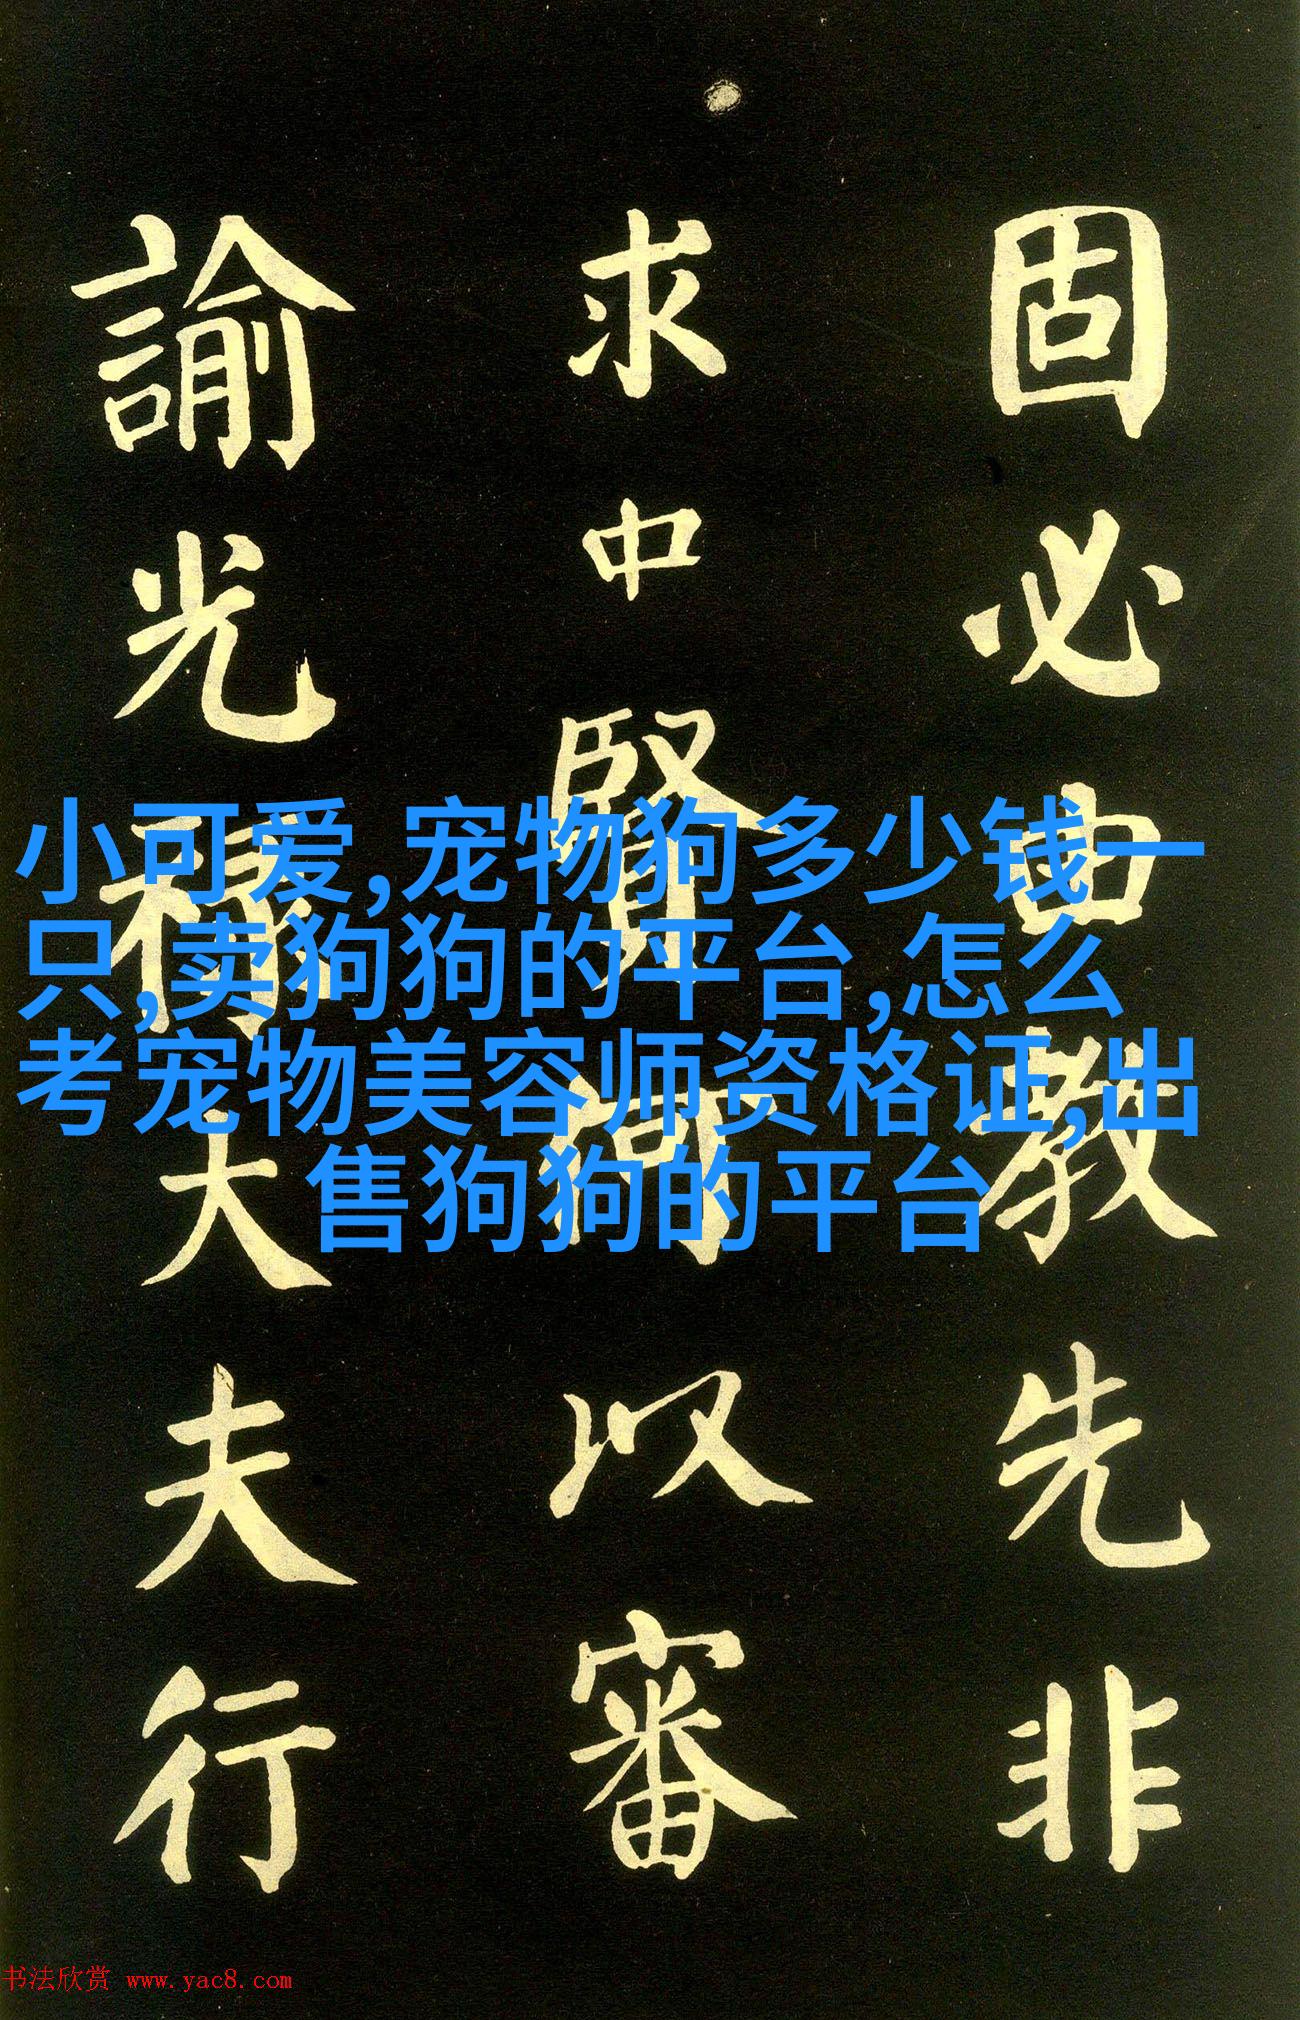 固必由教先非
求中賢何以審
諭光祿大夫行
小可爱,宠物狗多少钱一
只,卖狗狗的平台,怎么
考宠物美容师资格证,出
售狗狗的平台
书法欣赏 www.yac8.com